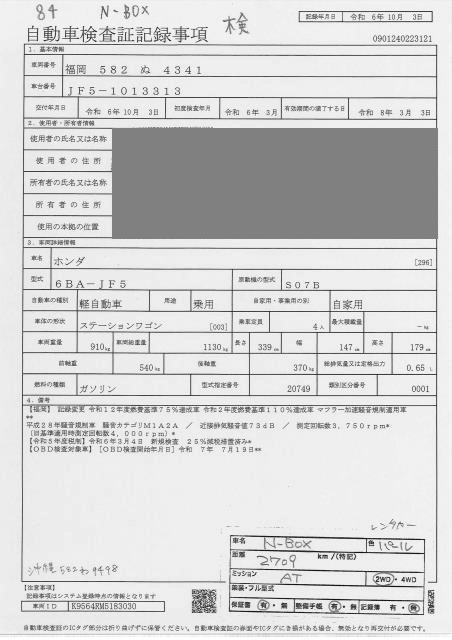 84 N-BOX
検
記録年月日 令和 6年10月 3日
自動車検査証記録事項
0901240223121
1．基本情報
車両番号 福岡 582 ぬ 4341
車台番号 JF5-1013313
交付年月日 令和 6年10月 3日 初度検査年月 令和 6年 3月 有効期間の満了する日 令和 8年 3月 3日
2．使用者・所有者情報
使用者の氏名又は名称
使用者の住所
所有者の氏名又は名称
所有者の住所
使用の本拠の位置
3．車両詳細情報
車名 ホンダ [296]
型式 6BA-JF5 原動機の型式 S07B
自動車の種別 軽自動車 用途 乗用 自家用・事業用の別 自家用
車体の形状 ステーションワゴン [003] 乗車定員 4人 最大積載量 -kg
車両重量 910kg 車両総重量 1130kg 長さ 339cm 幅 147cm 高さ 179cm
前軸重 540kg 後軸重 370kg 総排気量又は定格出力 0.65L
燃料の種類 ガソリン 型式指定番号 20749 類別区分番号 0001
4．備考
【福岡】 記録変更 令和12年度燃費基準75％達成車 令和2年度燃費基準110％達成車 マフラー加速騒音規制適用車
**
平成28年騒音規制車 騒音カテゴリM1A2A ／ 近接排気騒音値73dB ／ 測定回転数3，750rpm*
(旧基準適用時測定回転数4，000rpm)*
【令和5年度税制】令和6年3月4日 新規検査 25％減税措置済み*
【OBD検査対象車】[OBD検査開始年月日] 令和 7年 7月19日**
レンタカー
車名 N-BOX 色 パール
距離 2709 km/(特記)
ミッション AT 2WD・4WD
架装・フル型式
保証書 有・無 整備手帳 有・無 記録簿 有・無
沖縄 582わ9498
【注意事項】
記録事項はシステム登録時点の情報となります
車両ID K9564RM5183030
自動車検査証のICタグ部分は折り曲げずに保管ください。自動車検査証の券面やICタグにき損がある場合、無効となり再交付が必要です。